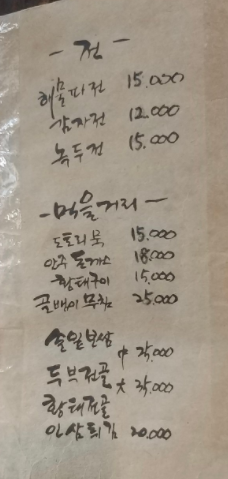 - 전 -
해물파전 15.000
감자전 12.000
녹두전 15.000
- 먹을거리 -
도토리묵 15.000
안주 돈까스 18.000
황태구이 15.000
골뱅이 무침 25.000
中 25.000
두부전골 大 35.000
황태전골
인삼튀김 20.000